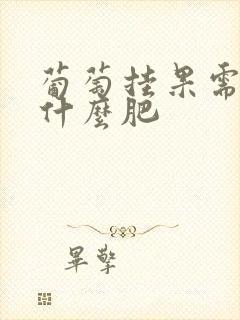 葡萄挂果需
什麼肥
畢擎